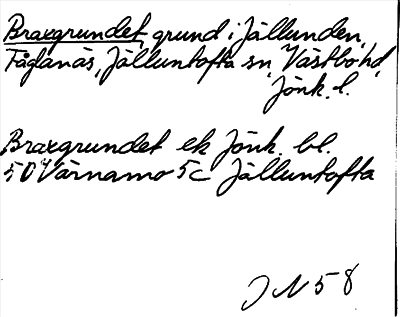 Braxgrundet, grund i Jällunden,
Fåglanäs, Jälluntofta sn, Västbo hd,
Jönk. l.
Braxgrundet ek Jönk. bl.
5D Värnamo 5c Jälluntofta
JN 58